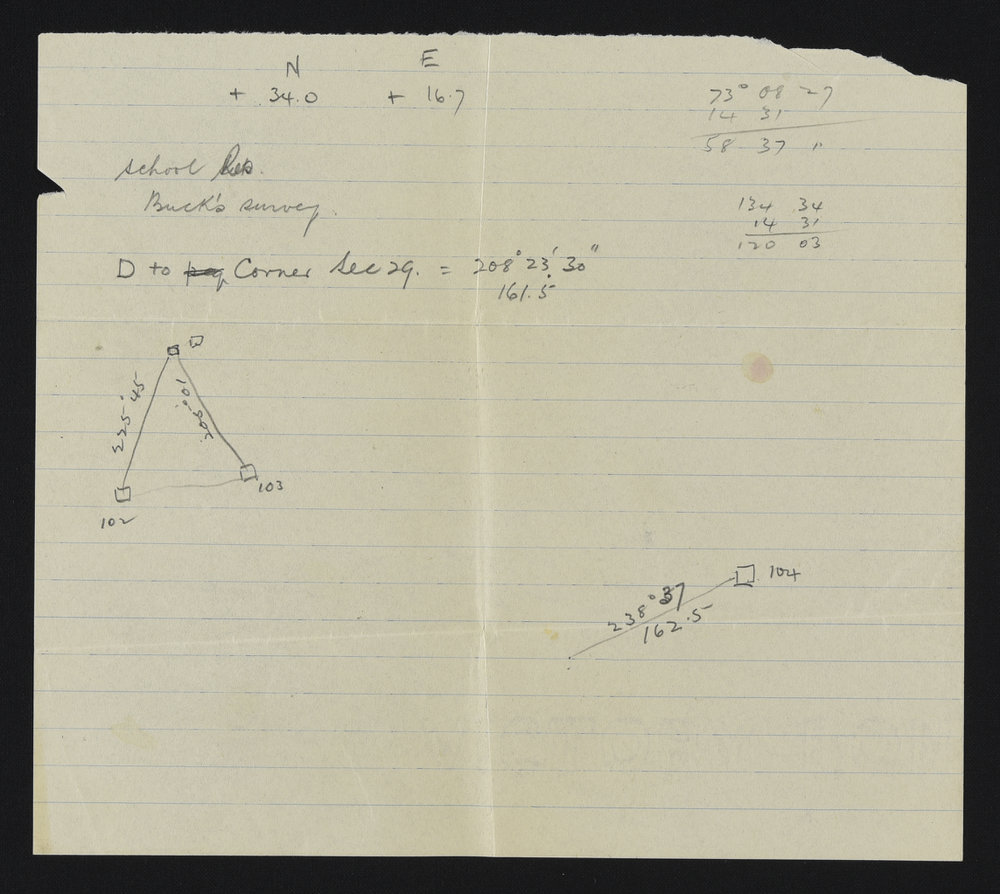 N E
+ 34.0 + 16.7
73° 08 27
14 31
58 37 "
school Res.
Buck's survey.
134 34
14 31
120 03
D to peg Corner Sec 29. = 208° 23' 30"
161.5
D
225° 45
208° 01
102
103
104
238° 37
162.5